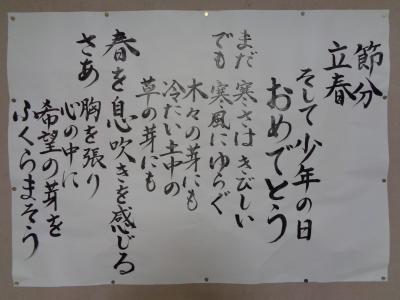 節分
立春
そして少年の日
おめでとう
まだ 寒さはきびしい
でも 寒風にゆらぐ
木々の芽にも
冷たい土中の
草の芽にも
春を息吹きを感じる
さあ 胸を張り
心の中に
希望の芽を
ふくらまそう